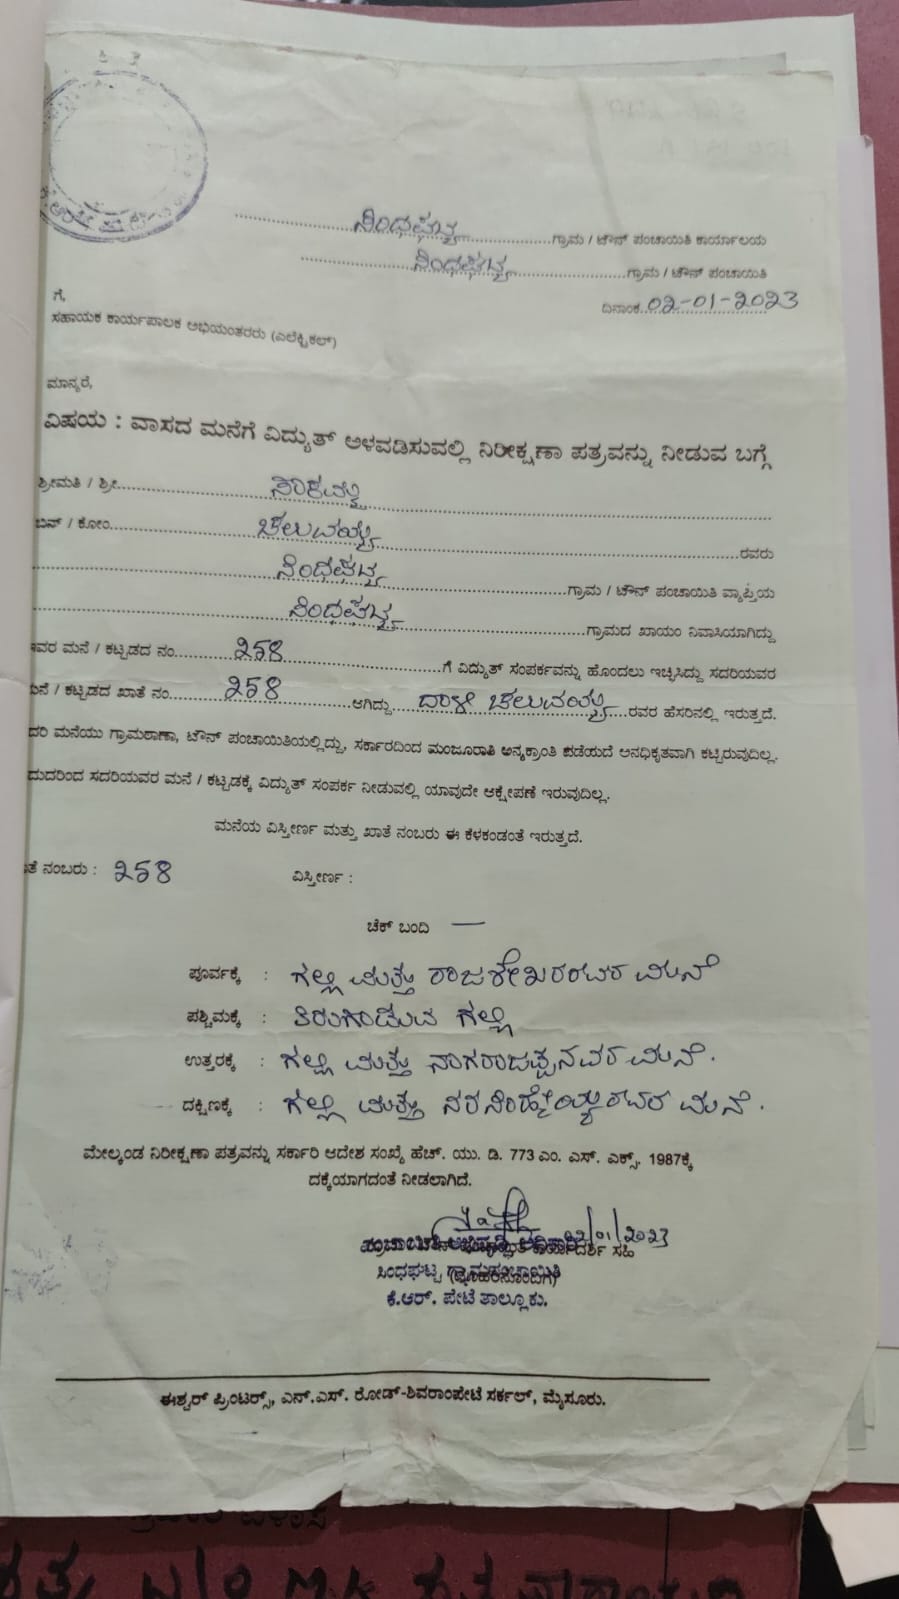 ಸಿಂಧಘಟ್ಟ ಗ್ರಾಮ / ಟೌನ್ ಪಂಚಾಯಿತಿ ಕಾರ್ಯಾಲಯ
ಸಿಂಧಘಟ್ಟ ಗ್ರಾಮ / ಟೌನ್ ಪಂಚಾಯಿತಿ
ದಿನಾಂಕ 02-01-2023
ಗೆ,
ಸಹಾಯಕ ಕಾರ್ಯಪಾಲಕ ಅಭಿಯಂತರರು (ಎಲೆಕ್ಟ್ರಿಕಲ್)
ಮಾನ್ಯರೆ,
ವಿಷಯ : ವಾಸದ ಮನೆಗೆ ವಿದ್ಯುತ್ ಅಳವಡಿಸುವಲ್ಲಿ ನಿರೀಕ್ಷಣಾ ಪತ್ರವನ್ನು ನೀಡುವ ಬಗ್ಗೆ
ಶ್ರೀಮತಿ / ಶ್ರೀ
ಬಿನ್ / ಕೋಂ ಚಲುವಯ್ಯ ರವರು
ಸಿಂಧಘಟ್ಟ ಗ್ರಾಮ / ಟೌನ್ ಪಂಚಾಯಿತಿ ವ್ಯಾಪ್ತಿಯ
ಸಿಂಧಘಟ್ಟ ಗ್ರಾಮದ ಖಾಯಂ ನಿವಾಸಿಯಾಗಿದ್ದು
ಇವರ ಮನೆ / ಕಟ್ಟಡದ ನಂ. 258 ಗೆ ವಿದ್ಯುತ್ ಸಂಪರ್ಕವನ್ನು ಹೊಂದಲು ಇಚ್ಛಿಸಿದ್ದು ಸದರಿಯವರ
ಮನೆ / ಕಟ್ಟಡದ ಖಾತೆ ನಂ. 258 ಆಗಿದ್ದು ದಾಳಿ ಚಲುವಯ್ಯ ರವರ ಹೆಸರಿನಲ್ಲಿ ಇರುತ್ತದೆ.
ದರಿ ಮನೆಯು ಗ್ರಾಮಠಾಣಾ, ಟೌನ್ ಪಂಚಾಯಿತಿಯಲ್ಲಿದ್ದು, ಸರ್ಕಾರದಿಂದ ಮಂಜೂರಾತಿ ಅನ್ಯಕ್ರಾಂತಿ ಪಡೆಯದೆ ಅನಧಿಕೃತವಾಗಿ ಕಟ್ಟಿರುವುದಿಲ್ಲ.
ದುದರಿಂದ ಸದರಿಯವರ ಮನೆ / ಕಟ್ಟಡಕ್ಕೆ ವಿದ್ಯುತ್ ಸಂಪರ್ಕ ನೀಡುವಲ್ಲಿ ಯಾವುದೇ ಆಕ್ಷೇಪಣೆ ಇರುವುದಿಲ್ಲ.
ಮನೆಯ ವಿಸ್ತೀರ್ಣ ಮತ್ತು ಖಾತೆ ನಂಬರು ಈ ಕೆಳಕಂಡಂತೆ ಇರುತ್ತದೆ.
ತೆ ನಂಬರು : 258 ವಿಸ್ತೀರ್ಣ :
ಚೆಕ್ ಬಂದಿ —
ಪೂರ್ವಕ್ಕೆ : ಗಲ್ಲಿ ಮತ್ತು ರಾಜಶೇಖರರವರ ಮನೆ
ಪಶ್ಚಿಮಕ್ಕೆ : ತಿರುಗಾಡುವ ಗಲ್ಲಿ
ಉತ್ತರಕ್ಕೆ : ಗಲ್ಲಿ ಮತ್ತು ನಾಗರಾಜಪ್ಪನವರ ಮನೆ.
ದಕ್ಷಿಣಕ್ಕೆ : ಗಲ್ಲಿ ಮತ್ತು ನರಸಿಂಹಯ್ಯರವರ ಮನೆ.
ಮೇಲ್ಕಂಡ ನಿರೀಕ್ಷಣಾ ಪತ್ರವನ್ನು ಸರ್ಕಾರಿ ಆದೇಶ ಸಂಖ್ಯೆ ಹೆಚ್. ಯು. ಡಿ. 773 ಎಂ. ಎಸ್. ಎಕ್ಸ್. 1987ಕ್ಕೆ
ದಕ್ಕೆಯಾಗದಂತೆ ನೀಡಲಾಗಿದೆ.
02/01/2023
ಪಂಚಾಯತಿ ಅಭಿವೃದ್ಧಿ ಅಧಿಕಾರಿ
ಸಿಂಧಘಟ್ಟ ಗ್ರಾಮ ಪಂಚಾಯಿತಿ
ಕೆ.ಆರ್. ಪೇಟೆ ತಾಲ್ಲೂಕು.
ಈಶ್ವರ್ ಪ್ರಿಂಟರ್ಸ್, ಎನ್.ಎಸ್. ರೋಡ್-ಶಿವರಾಂಪೇಟೆ ಸರ್ಕಲ್, ಮೈಸೂರು.